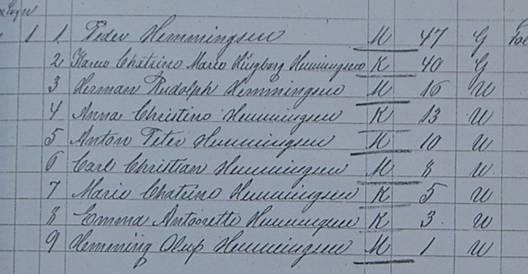 1 1 Peder Hemmingsen M 47 G
2 Karen Chatrine Marie Hingborg Hemmingsen K 40 G
3 Herman Rudolph Hemmingsen M 16 U
4 Anna Christine Hemmingsen K 13 U
5 Anton Peter Hemmingsen M 10 U
6 Carl Christian Hemmingsen M 8 U
7 Marie Chatrine Hemmingsen K 5 U
8 Emma Antonette Hemmingsen K 3 U
9 Hemming Oluf Hemmingsen M 1 U